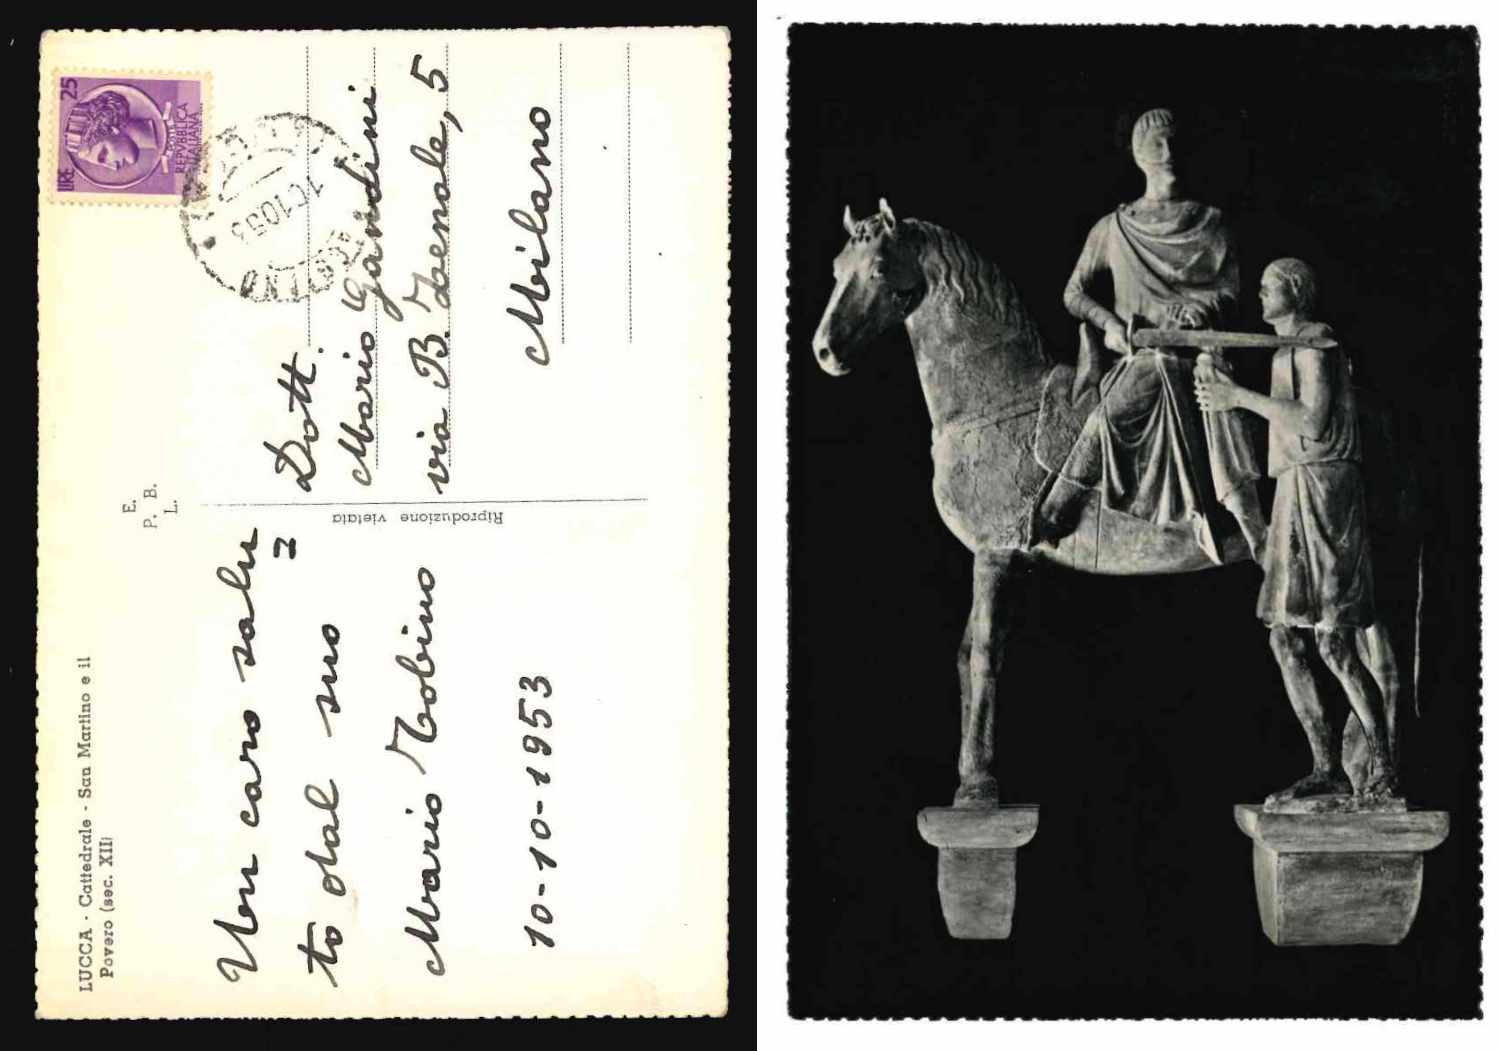 LUCCA - Cattedrale - San Martino e il
Povero (sec. XII)
E.
P. B.
L.
Riproduzione vietata
LIRE 25
POSTE
REPVBBLICA
ITALIANA
10 10 53
Un caro salu
=
to dal suo
Mario Tobino
10-10-1953
Dott.
Mario Gandini
via B. Zenale, 5
Milano